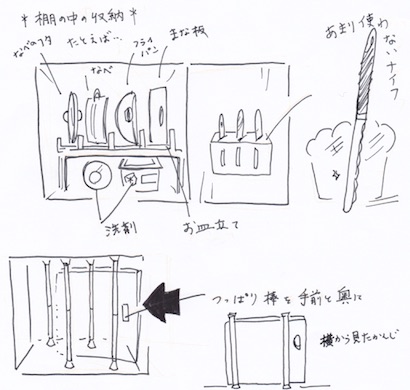 *棚の中の収納*
たとえば…
なべのフタ
なべ
フライ
パン
まな板
あまり使わ
ないナイフ
洗剤
お皿立て
つっぱり棒を手前と奥に
横から見たかんじ